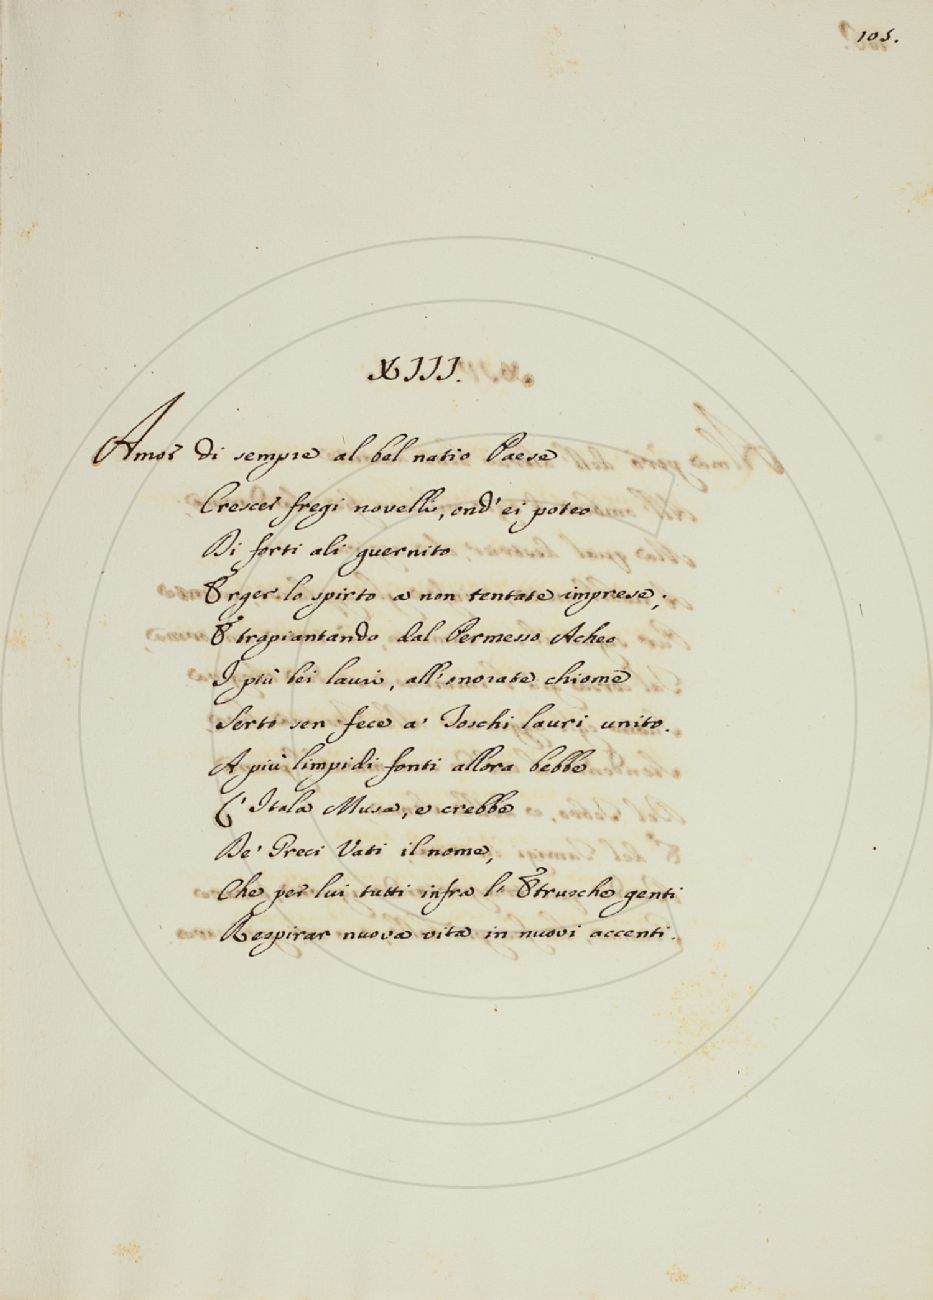 105.
XIII.
Amor di sempre al bel natio Paese
Crescer fregi novelli, ond' ei poteo
Di forti ali guernito
Erger lo spirto a non tentate imprese;
E trapiantando dal Permesso Acheo
I più bei lauri, all' onorate chiome
Serto sen fece a' Toschi lauri unito.
A più limpidi fonti allora bebbe
L' Itala Musa, e crebbe
De' Greci Vati il nome,
Che per lui tutti infra l' Etrusche genti
Respirar nuova vita in nuovi accenti.